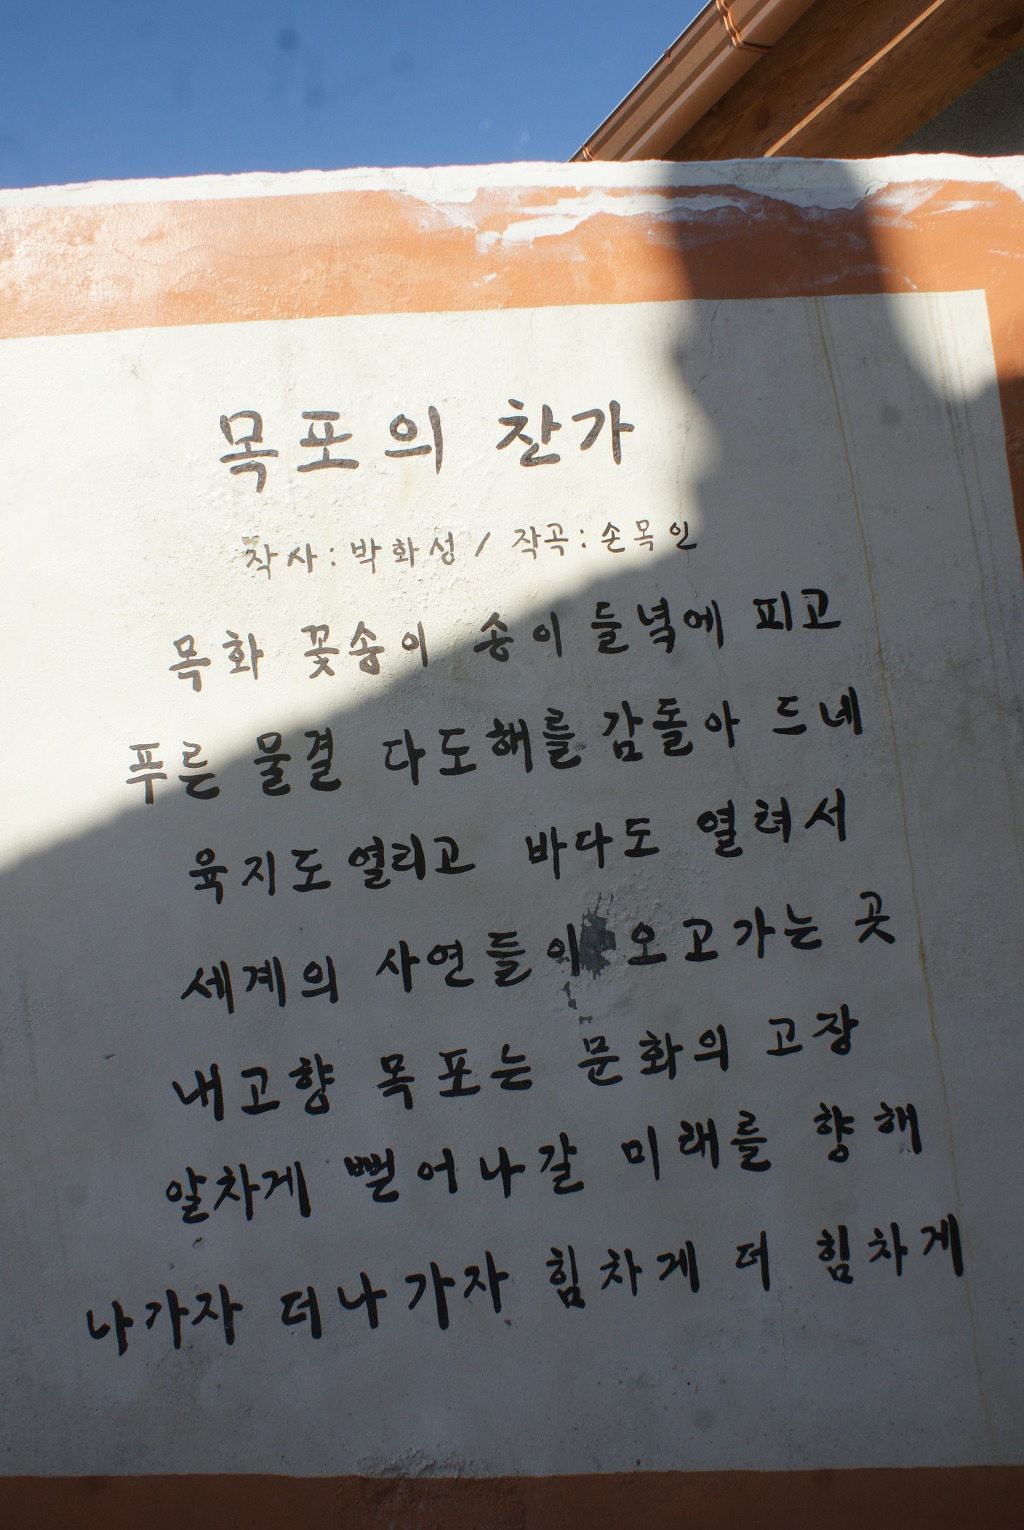 목포의 찬가
작사:박화성 / 작곡:손목인
목화 꽃송이 송이 들녘에 피고
푸른 물결 다도해를 감돌아 드네
육지도 열리고 바다도 열려서
세계의 사연들이 오고가는 곳
내고향 목포는 문화의 고장
알차게 뻗어나갈 미래를 향해
나가자 더나가자 힘차게 더 힘차게